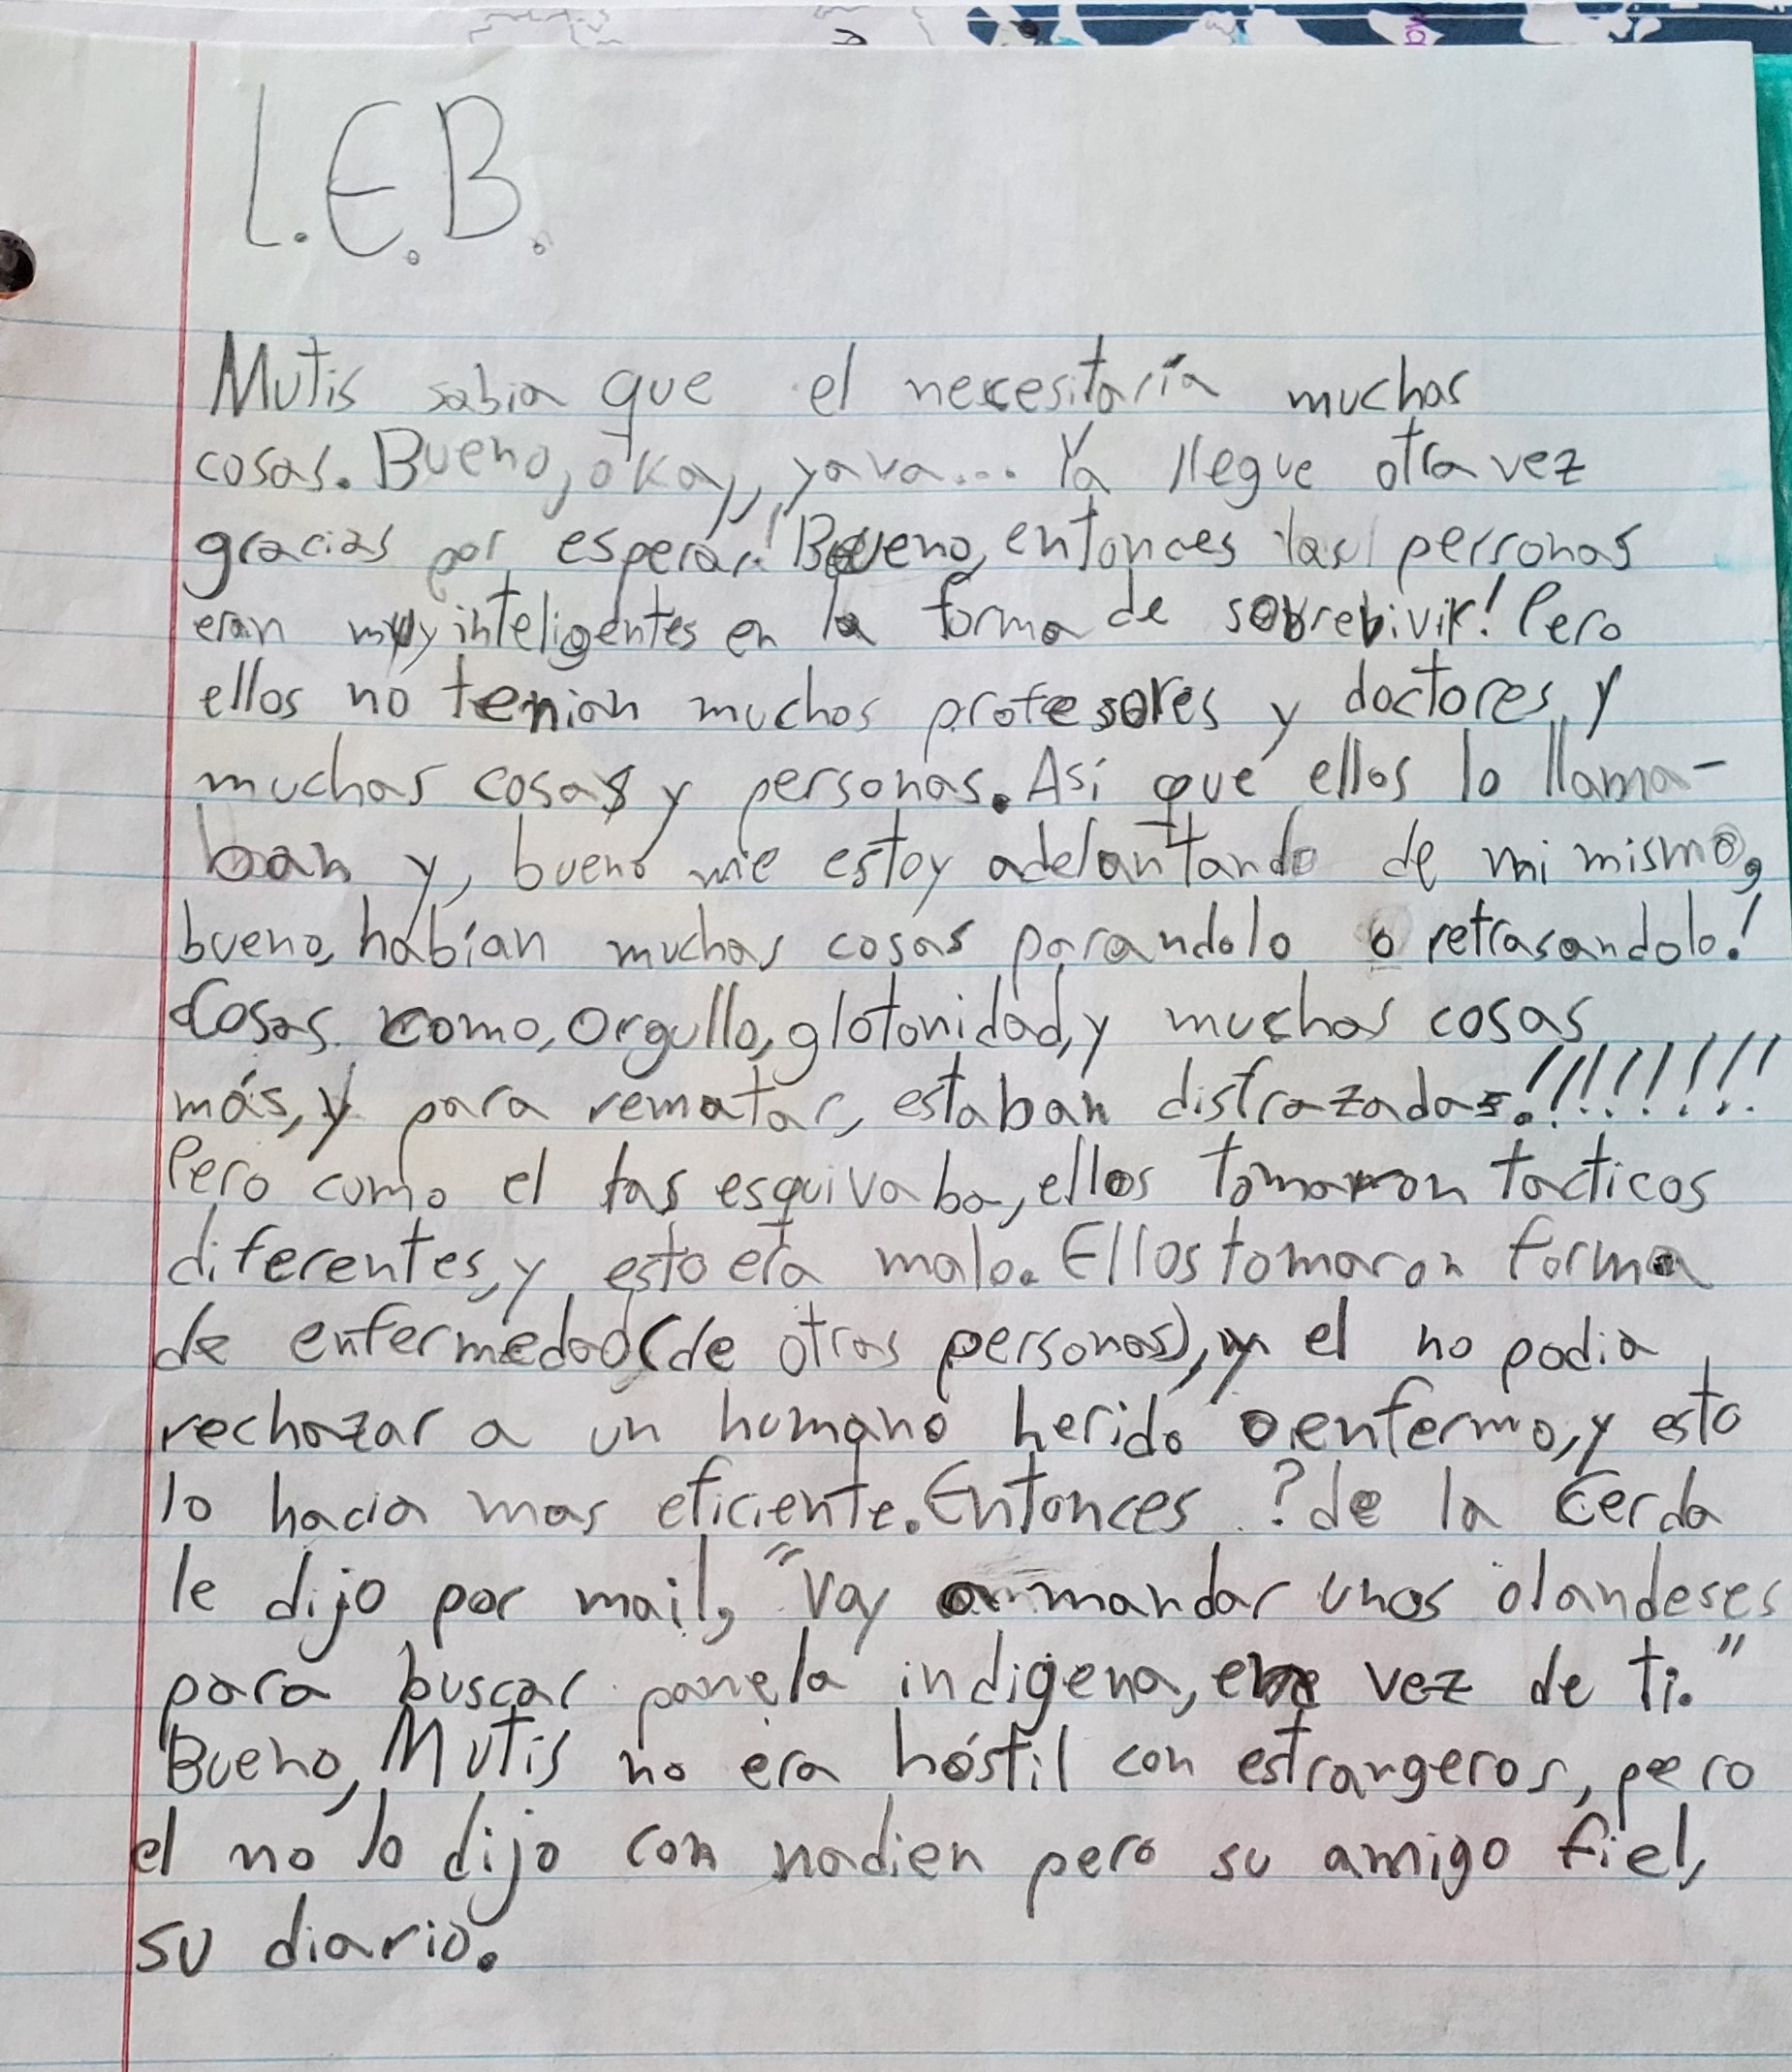 L.E.B.
Mutis sabia que el necesitaría muchas
cosas. Bueno, okay, yava... Ya llegue otra vez
gracias por esperar! Bueno, entonces las personas
eran muy inteligentes en la forma de sobrebivir! Pero
ellos no tenian muchos profesores y doctores, y
muchas cosas y personas. Así que ellos lo llama-
ban y, bueno me estoy adelantando de mi mismo,
bueno, habían muchas cosas parandolo o retrasandolo!
Cosas como, orgullo, glotonidad, y muchas cosas
más, y para rematar, estaban disfrazadas!!!!!!!!!
Pero como el las esquivaba, ellos tomaron tacticas
diferentes, y esto era malo. Ellos tomaron forma
de enfermedad (de otras personas), y el no podia
rechazar a un humano herido o enfermo, y esto
lo hacia mas eficiente. Entonces ? de la Cerda
le dijo por mail, "Voy a mandar unos olandeses
para buscar panela indigena, en vez de ti."
Bueno, Mutis no era hóstil con estrangeros, pero
el no lo dijo con nadien pero su amigo fiel,
su diario.